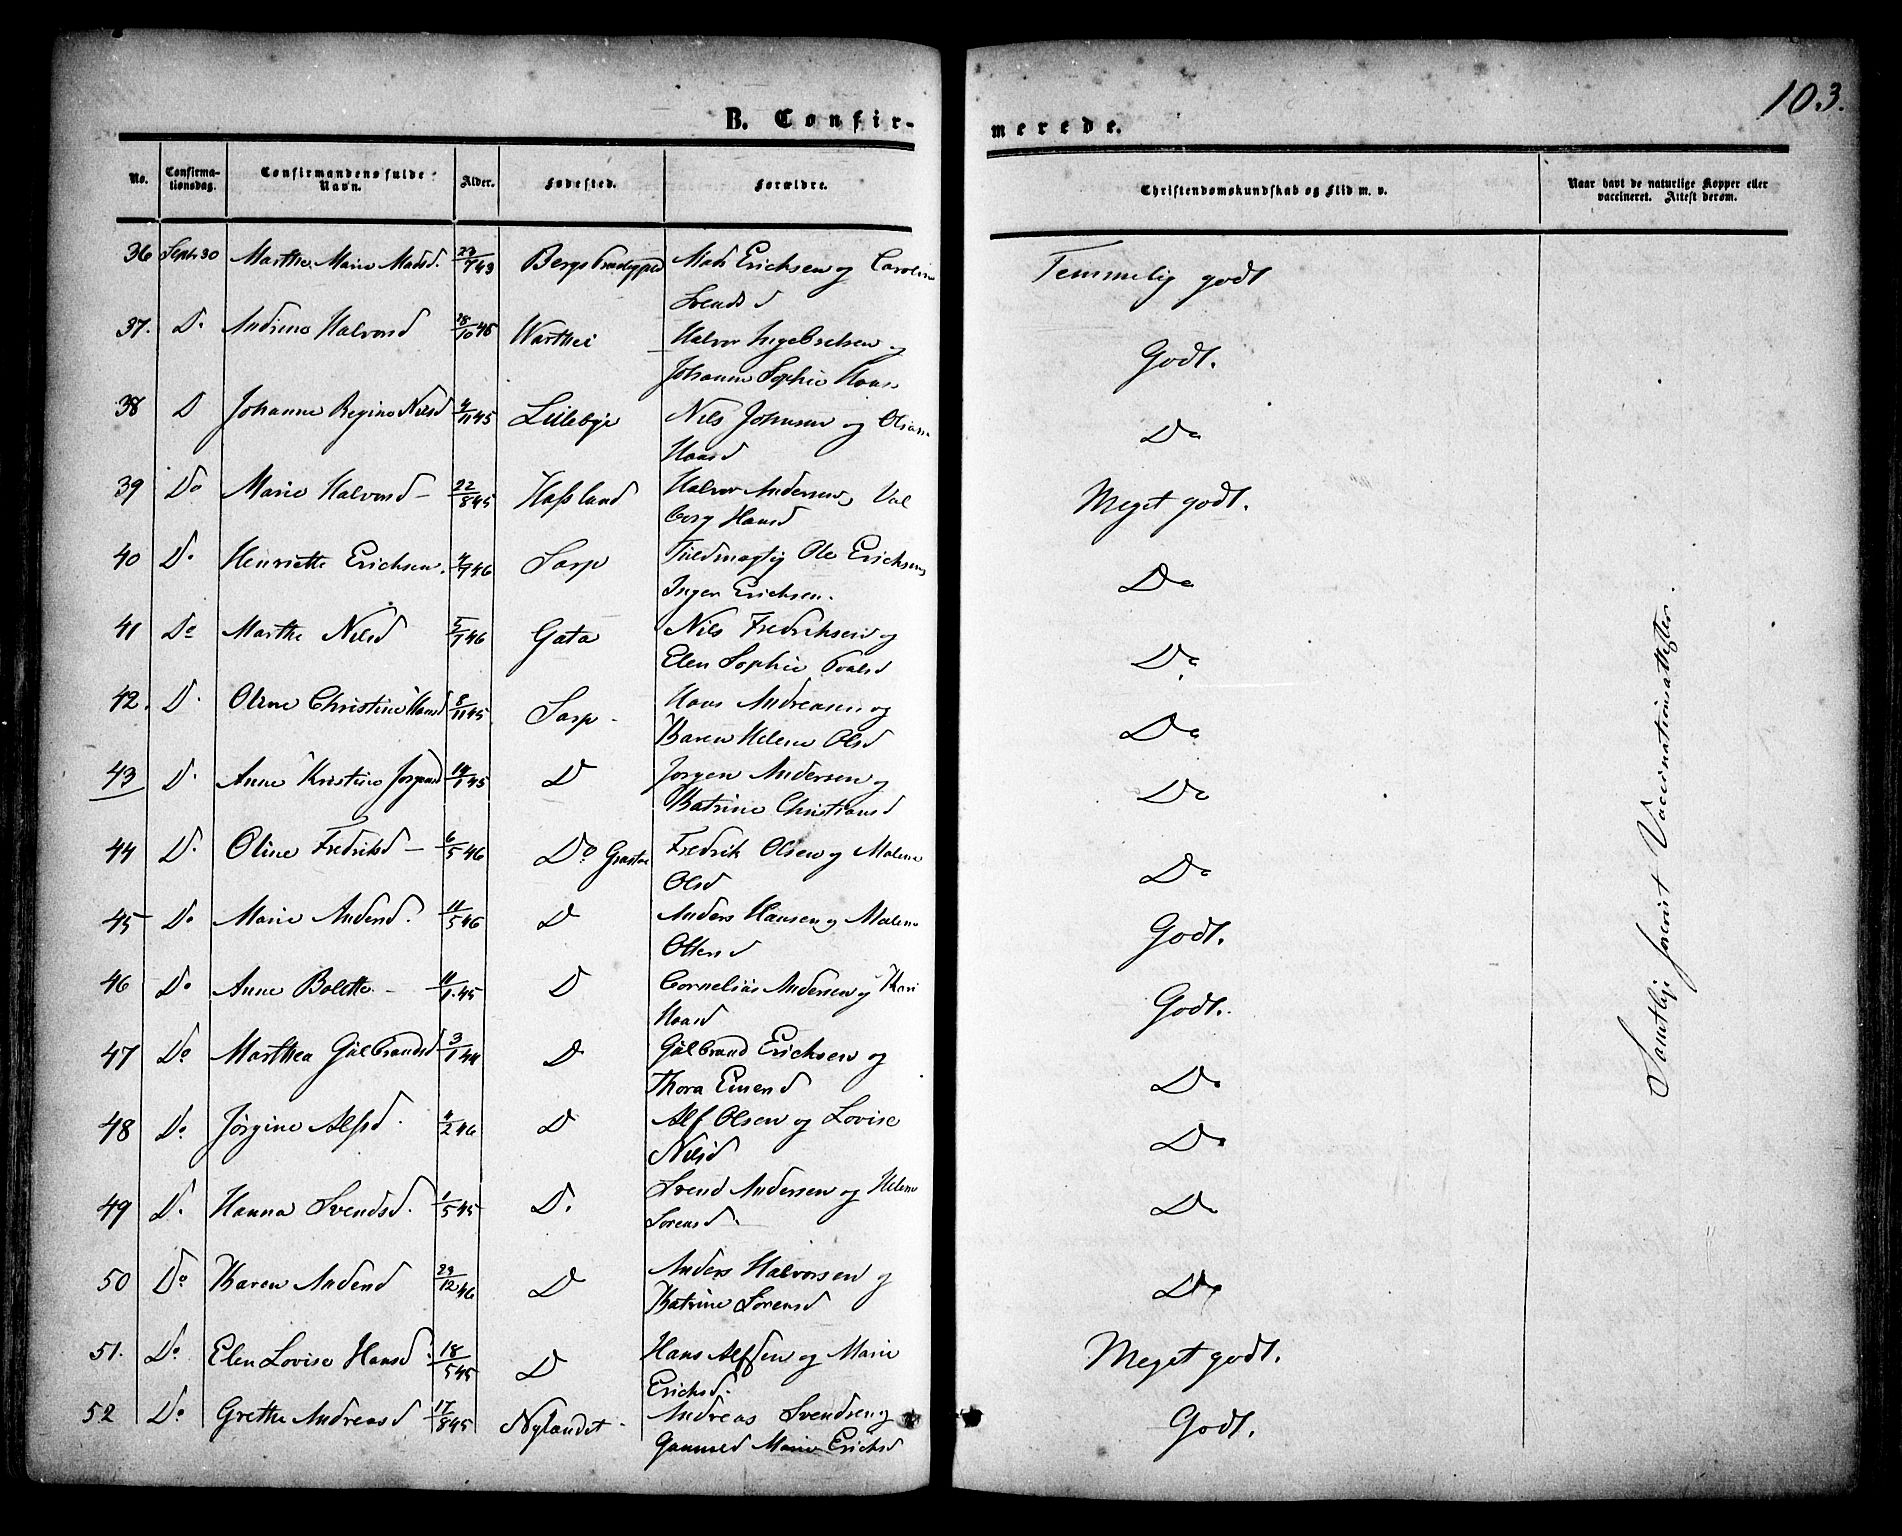 103.
B. Confir-
merede.
No.
Confirma-
tionsdag.
Confirmandens fulde
Navn.
Alder.
Fødested.
Forældre.
Christendomskundskab og Flid m. v.
Naar havt de naturlige Kopper eller
vaccineret. Attest derom.
36 Sept. 30 Marthe Marie Madsd. 23/7 43 Mads Erichsen og Caroline Temmelig godt
Svendsd
37. D. Andrine Halvorsd 28/10 45 Halvor Ingebretsen og Godt.
Johanne Sophie Hans
38 D Johanne Regine Nilsd 4/11 45 Lillebye Nils Johnsen og Do
Hansd
39 Do Marie Halvorsd 22/8 45 Hafslund Halvor Andersen, Val Meget godt.
borg Hansd
40 D. Henriette Erichsen. 4/7 46 Sarp Fuldmægtig Ole Erichsen Do
Inger Erichsen.
41 Do Marthe Nilsd 5/7 46 Gata Nils Fredriksen og Do
Elen Sophie
42. D. Oline Christine Hansd 8/11 45. Sarp Hans Andreasen og Do
Karen Helene Olsd
43 D. Anne Kristine Jørgensd 45 D Jørgen Andersen og Do
Katrine Christiansd
44 D. Oline Fredriksd 6/5 46 Do Fredrik Olsen og Malene Do
Olsd
45 Do Marie Andersd. 11/5 46 D Anders Hansen og Malene Godt.
Ottersd
46 Do Anne Bolette 11/1 45 D Cornelius Andersen og Kari Godt.
Hansd
47 Do Marthea Gulbrandsd 3/1 44 D Gulbrand Erichsen og Do
Thora Einersd
48 Do Jørgine Alfsd. 4/2 46 D Alf Olsen og Lovise Do
Nilsd
49 D. Hanna Svendsd. 1/5 45 D. Svend Andersen og Helene Do
Sørensd.
50 Do Karen Andersd 29/12 46 D Anders Halvorsen og Do
Katrine Sørensd
51. Do Elen Lovise Hansd. 18/5 45 D Hans Alfsen og Marie Meget godt.
Erichsd.
52 Do Grethe Andreasd 17/8 45 Nylandet Andreas Svendsen og Godt.
Gunnild Marie Erichsd
Samtlige forevist Vaccinationsattester.